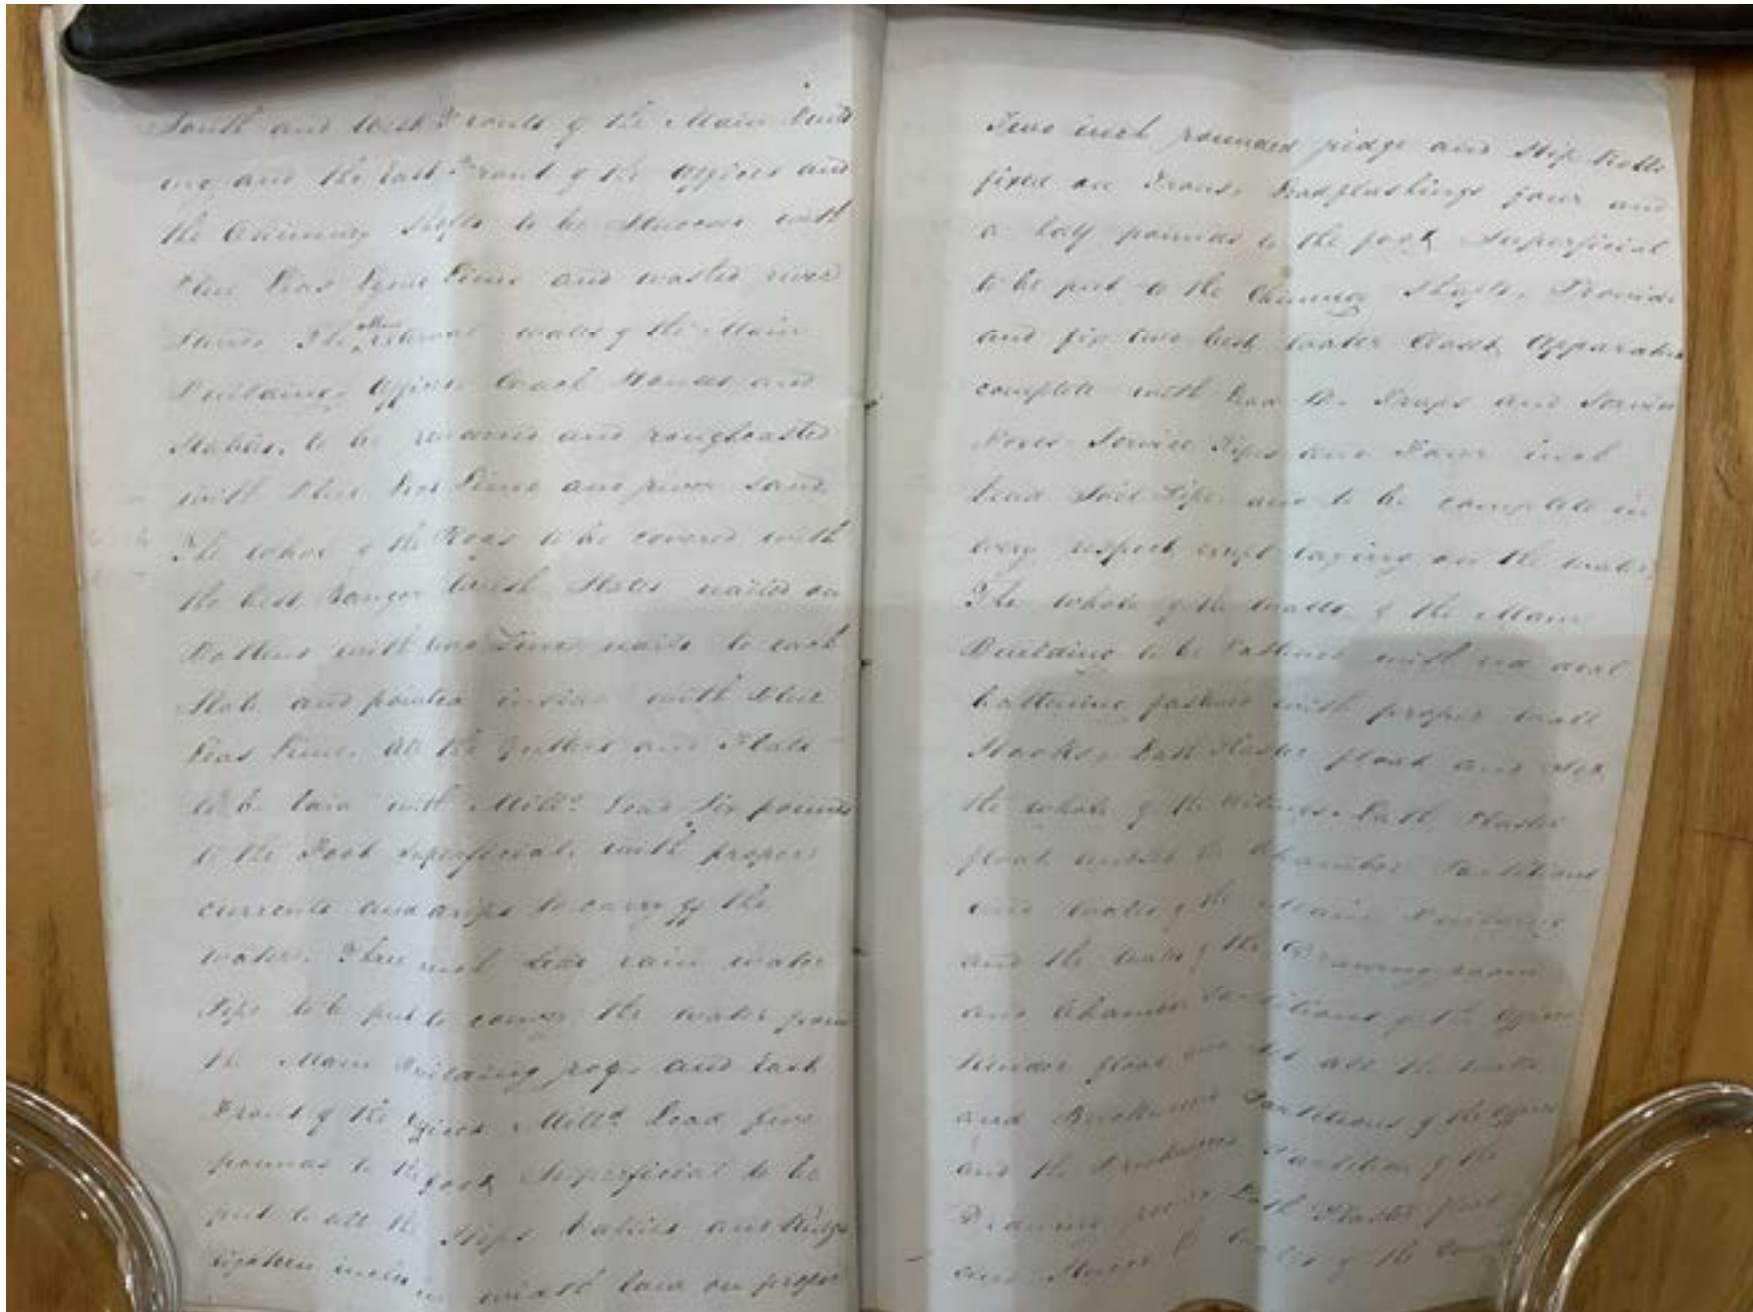 South and West Fronts of the Main Build
ing and the East Front of the Offices and
the Chimney Shafts to be Stuccoed with
Blue Lias Lime and washed river
Sand. The other external walls of the Main
Building, Offices Coach House and
Stables, to be and roughcasted
with Blue Lias Lime and river Sand.
The whole of the Roofs to be covered with
the best Bangor Slates nailed on
Battens with two Zinc nails to each
Slate and pointed inside with Blue
Lias Lime. All the Gutters and Flats
to be laid with Mill'd Lead Six pounds
to the Foot superficial, with proper
currents and drips to carry off the
water. Three inch lead rain water
Pipes to be put to convey the water from
the Main Building roof and East
Front of the Offices. Mill'd Lead five
pounds to the foot Superficial to be
put to all the Hips Vallies and Ridges
Eighteen inches in width laid on proper
Two inch rounded ridge and Hip Rolls
fixed on Lead flashings four and
a half pounds to the foot Superficial
to be put to the Chimney Shafts. Provide
and fix two best Water Closet Apparatus
complete with Lead D. Traps and Service
Boxes Service Pipes and Four inch
Lead Soil Pipe and to be complete in
every respect except laying on the water.
The whole of the walls of the Main
Building to be battened with red deal
battening fastened with proper Wall
Hooks. Lath Plaster float and set
the whole of the Ceilings. Lath Plaster
float and set the Chamber Partitions
and walls of the Main Building
and the walls of the Drawing room
and Chamber Partitions of the Offices
Render float and set all the walls
and Brickwork Partitions of the Offices
and the Partition of the
Drawing room Lath Plaster float
and of the